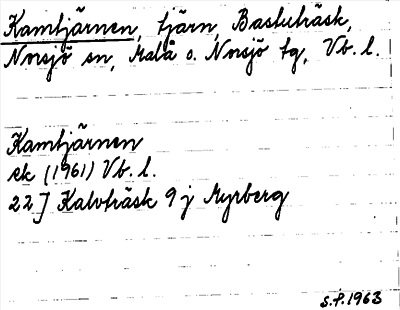 Kamtjärnen, tjärn, Bastuträsk,
Norsjö sn, Malå o. Norsjö tg, Vb. l.
Kamtjärnen
ek (1961) Vb. l.
22 J Kalvträsk 9 j Myrberg
S.F. 1963